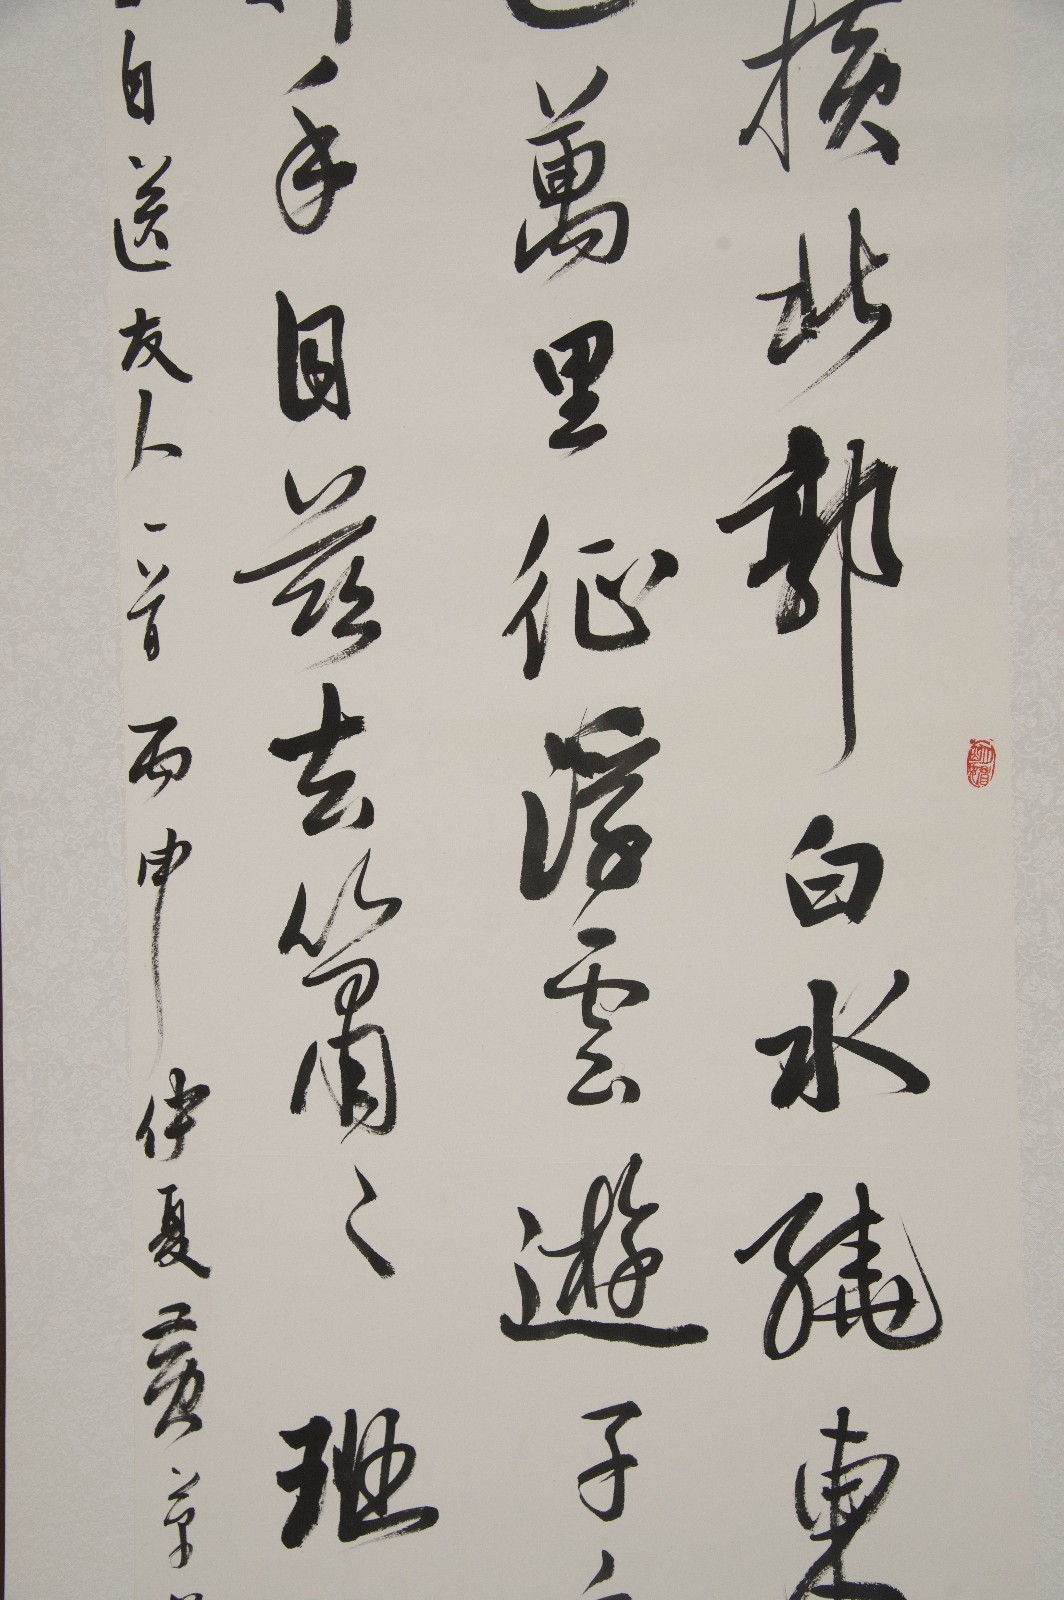 橫北郭白水繞東
萬里征浮雲遊子
手自茲去蕭〻班
自送友人一首丙申仲夏黃草